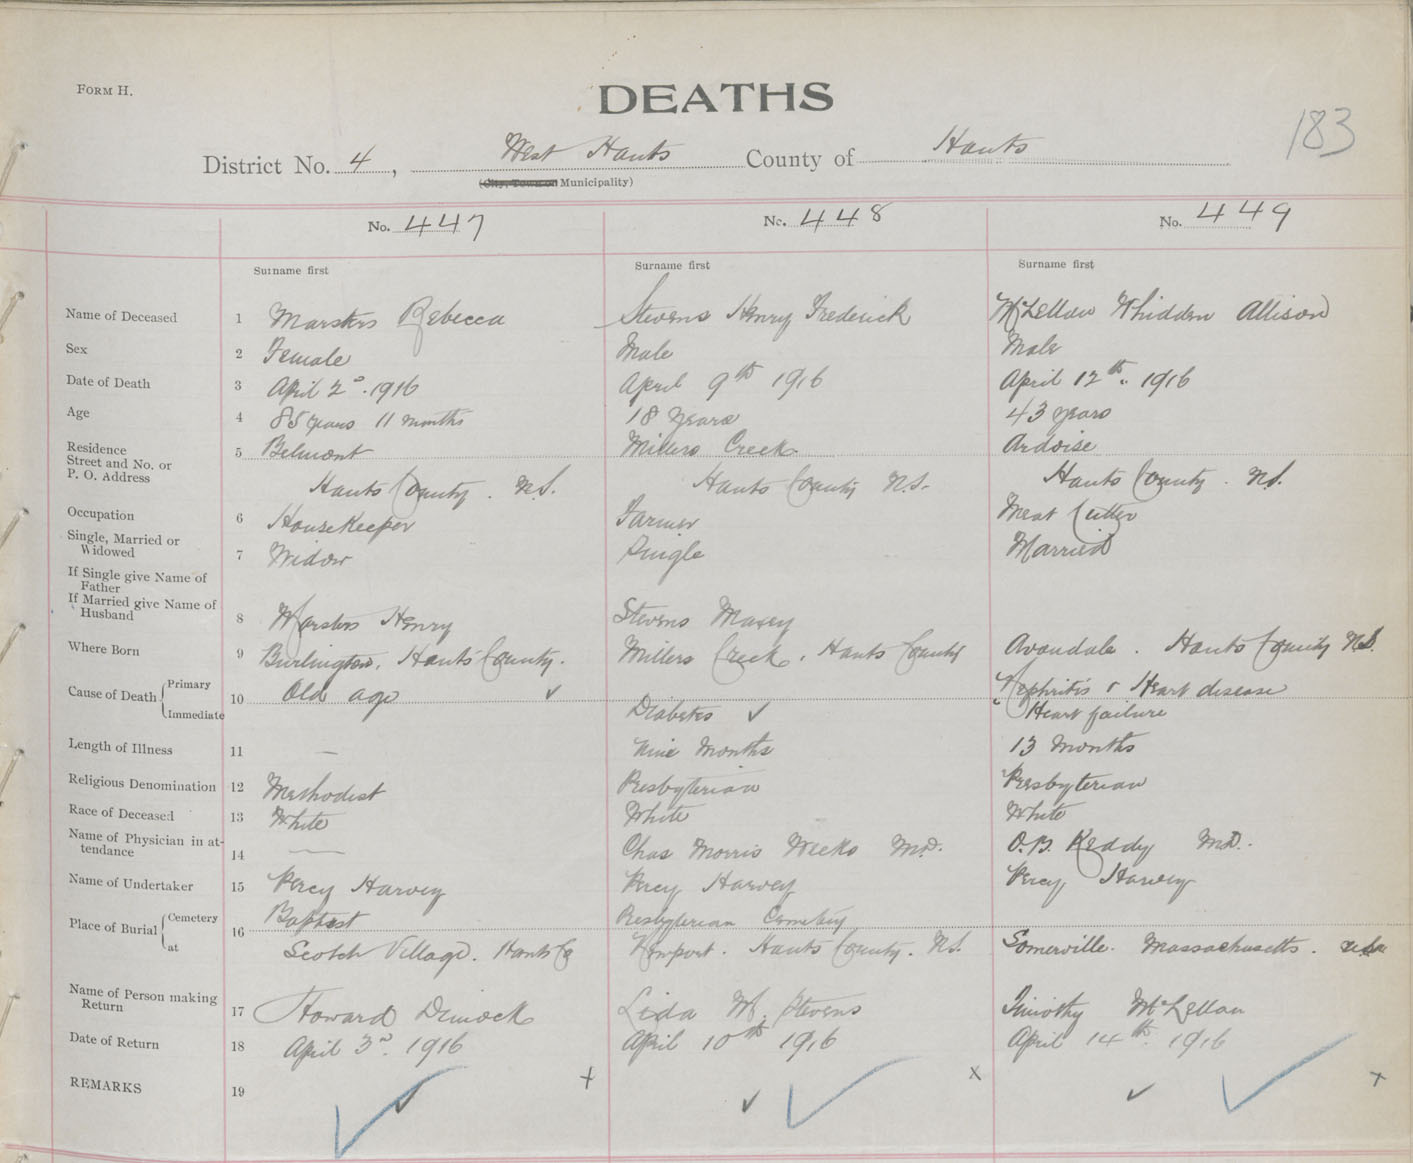 FORM H.
DEATHS
183
District No. 4, West Hants County of Hants
(City, Town or Municipality)
No. 447 No. 448 No. 449
Surname first Surname first Surname first
Name of Deceased 1 Marsters Rebecca Stevens Henry Frederick McLellan Whidden Allison
Sex 2 Female Male Male
Date of Death 3 April 2nd. 1916 April 9th 1916 April 12th. 1916
Age 4 85 years 11 months 18 years 43 years
Residence
Street and No. or 5 Belmont Millers Creek. Ardoise
P. O. Address Hants County. N.S. Hants County N.S. Hants County. N.S.
Occupation 6 HouseKeeper Farmer Meat Cutter
Single, Married or
Widowed 7 Widow Single Married
If Single give Name of
Father
If Married give Name of
Husband 8 Marsters Henry Stevens
Where Born 9 Burlington, Hants County. Millers Creek. Hants County Avondale. Hants County N.S.
Cause of Death Primary 10 Old age ✓ Nephritis & Heart disease
Immediate Diabetes ✓ Heart failure
Length of Illness 11 — Nine Months 13 Months
Religious Denomination 12 Methodist Presbyterian Presbyterian
Race of Deceased 13 White White White
Name of Physician in at-
tendance 14 — Chas Morris Weeks M.D. O.B. Keddy M.D.
Name of Undertaker 15 Percy Harvey Percy Harvey Percy Harvey
Place of Burial Cemetery 16 Baptist Presbyterian Cemetery
at Scotch Village. Hants Co Newport. Hants County. N.S. Somerville. Massachusetts. USA
Name of Person making
Return 17 Howard Dimock Lida M. Stevens Timothy McLellan
Date of Return 18 April 3rd. 1916 April 10th 1916 April 14th. 1916
REMARKS 19 ✓ ✓ + ✓ ✓ x ✓ ✓ +